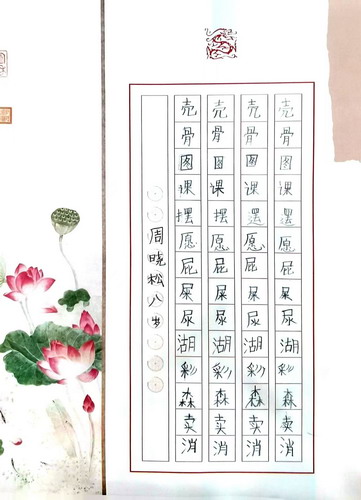 壳骨图课摆愿屁屎尿湖彩森卖消
壳骨图课摆愿屁屎尿湖彩森卖消
壳骨图课摆愿屁屎尿湖彩森卖消
壳骨图课摆愿屁屎尿湖彩森卖消
周晓松八岁